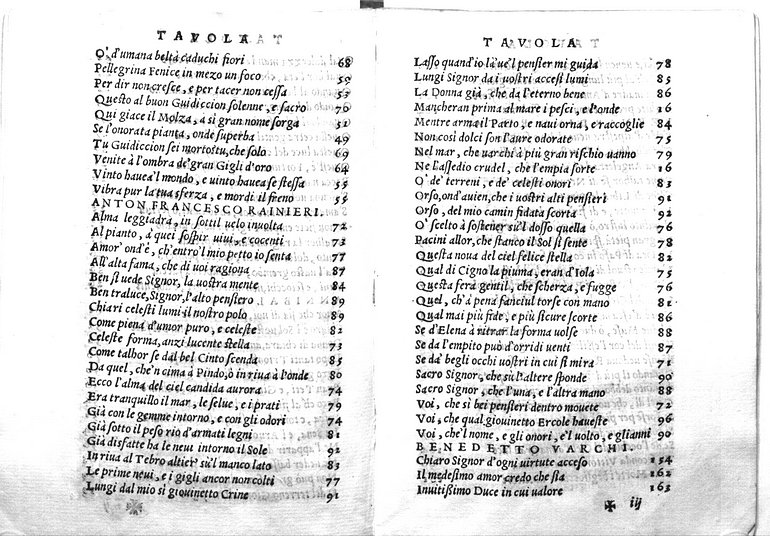 TAVOLA
O' d'umana beltà caduchi fiori 68
Pellegrina Fenice in mezo un foco 59
Per dir non cresce, e per tacer non cessa 53
Questo al buon Guidiccion solenne, e sacro 70
Qui giace il Molza, a si gran nome sorga 52
Se l'onorata pianta, onde superba 49
Tu Guidiccion sei morto tu, che solo 69
Venite à l'ombra de' gran Gigli d'oro 64
Vinto hauea'l mondo, e uinto hauea se stessa 55
Vibra pur la tua sferza, e mordi il freno 55
ANTON FRANCESCO RAINIERI.
Alma leggiadra, in sottil uelo inuolta 72
Al pianto, à quei sospir uiui, e cocenti 73
Amor' ond'è, ch'entro'l mio petto io senta 77
All'alta fama, che di uoi ragiona 87
Ben si uede Signor, la uostra mente 84
Ben traluce, Signor, l'alto pensiero 89
Chiari celesti lumi il nostro polo 89
Come piena d'amor puro, e celeste 82
Celeste forma, anzi lucente stella 73
Come talhor se dal bel Cinto scenda 85
Da quel, che'n cima à Pindo, ò in riua à l'onde 80
Ecco l'alma del ciel candida aurora 74
Era tranquillo il mar, le selue, e i prati 79
Già con le gemme intorno, e con gli odori 74
Già sotto il peso rio d'armati legni 81
Già disfatte ha le neui intorno il Sole 92
In riua al Tebro altier' sù'l manco lato 83
Le prime neui, e i gigli ancor non colti 77
Lungi dal mio si giouinetto Crine 91
TAVOLA
Lasso quand'io là ue'l pensier mi guida 78
Lungi Signor da i uostri accesi lumi 85
La Donna già, che da l'eterno bene 86
Mancheran prima al mare i pesci, e l'onde 16
Mentre arma il Parto, e naui orna, e raccoglie 84
Non così dolci son l'aure odorate 75
Nel mar, che uarchi à più gran rischio uanno 79
Ne l'assedio crudel, che l'empia sorte 16
O' de' terreni, e de' celesti onori 83
Orso, ond'auien, che i uostri alti pensieri 91
Orso, del mio camin fidata scorta 92
O' scelto à sostener sù'l dosso quella 76
Pacini allor, che stanco il Sol si sente 78
Questa noua del ciel felice stella 82
Qual di Cigno la piuma, eran d'Iola 75
Questa fera gentil, che scherza, e fugge 76
Quel, ch'à pena fanciul torse con mano 81
Qual mai più fide, e più sicure scorte 86
Se d'Elena à ritrar la forma uolse 88
Se da l'empito può d'orridi uenti 87
Se da' begli occhi uostri in cui si mira 71
Sacro Signor, che sù l'altere sponde 90
Sacro Signor, che l'una, e l'altra mano 88
Voi, che si bei pensieri dentro mouete 72
Voi, che qual giouinetto Ercole haueste 96
Voi, che'l nome, e gli onori, e'l uolto, e gli anni 90
BENEDETTO VARCHI.
Chiaro Signor d'ogni uirtute acceso 154
Il medesimo amor credo che sia 162
Inuitißimo Duce in cui ualore 163
✠ iij